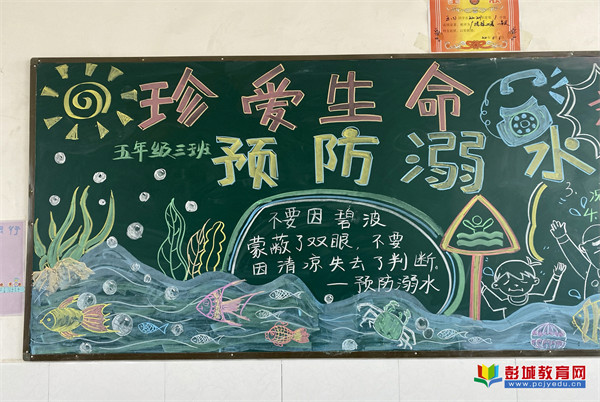 珍爱生命
五年级三班
预防溺水
不要因碧波
蒙蔽了双眼，不要
因清凉失去了判断。
—预防溺水
彭城教育网
www.pcjyedu.cn